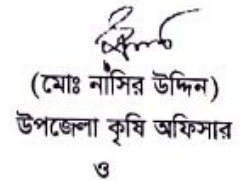 (মোঃ নাসির উদ্দিন)
উপজেলা কৃষি অফিসার
ও